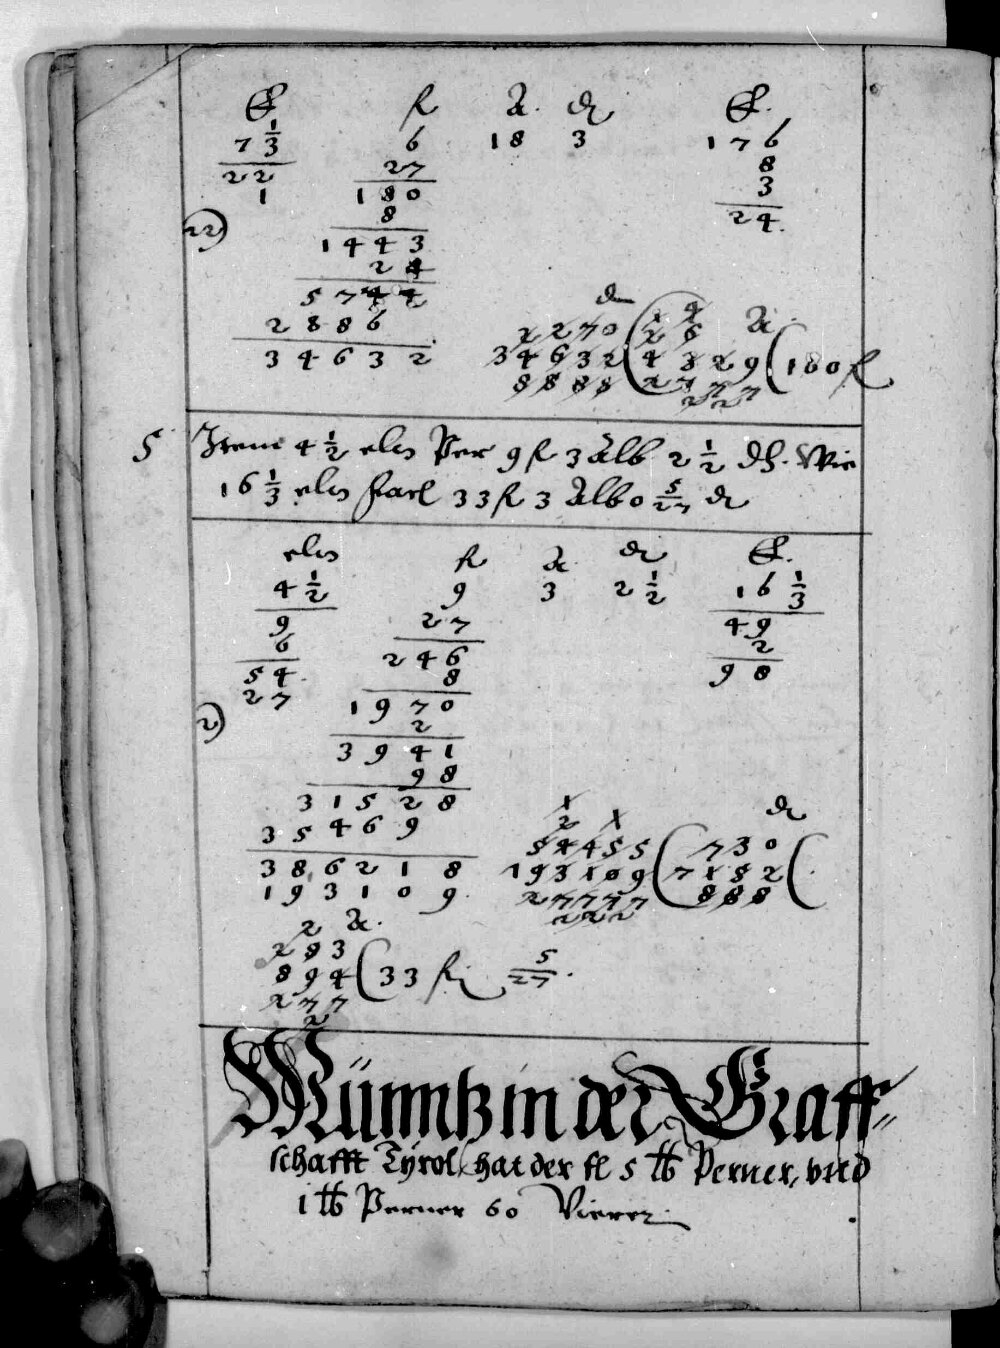 fl ₰
7 1/3 6 18 3 176
22 27 8
1 180 3
22) 8 24
1443
24
5744
2886
34632
2270
34632 ( 4329 ( 180 fl
8888
5 Item 4 1/2 eln Per 9 fl 3 Alb 2 1/2 dl. Wie
16 1/3 eln facit 33 fl 3 Alb 0 5/27 ₰
eln fl ₰
4 1/2 9 3 2 1/2 16 1/3
9 27 49
6 246 2
54 8 98
27 1970
2) 2
3941
98
31528
35469
386218
193109
54455 730
193109 ( 7152 (
27777 888
222
2
283
894 ( 33 fl 5/27
277
2
Münntz in der Graff=
schafft Tÿrol, hat der fl 5 ℔ Perner, vnd
1 ℔ Perner 60 Vierer